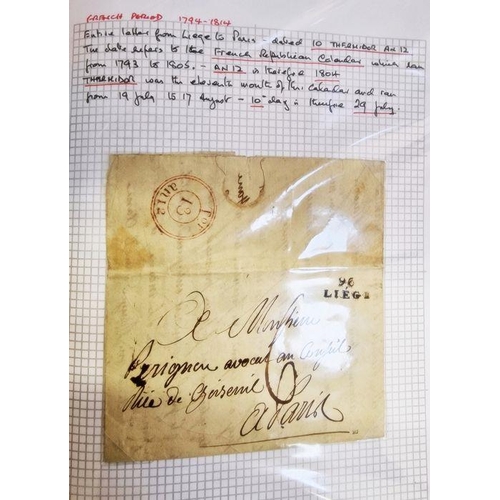 FRENCH PERIOD 1794-1814
Entire letter from Liege to Paris - dated 10 THERMIDOR AN 12
The date refers to the French Republican Calendar which ran
from 1793 to 1805. - AN 12 is therefore 1804
THERMIDOR was the eleventh month of this calendar and ran
from 19 July to 17 August - 10th day is therefore 29 July.
13
an 12
96
LIÉGE
Monsieur
Perignon avocat au
Rue de Choiseuil
6
a Paris